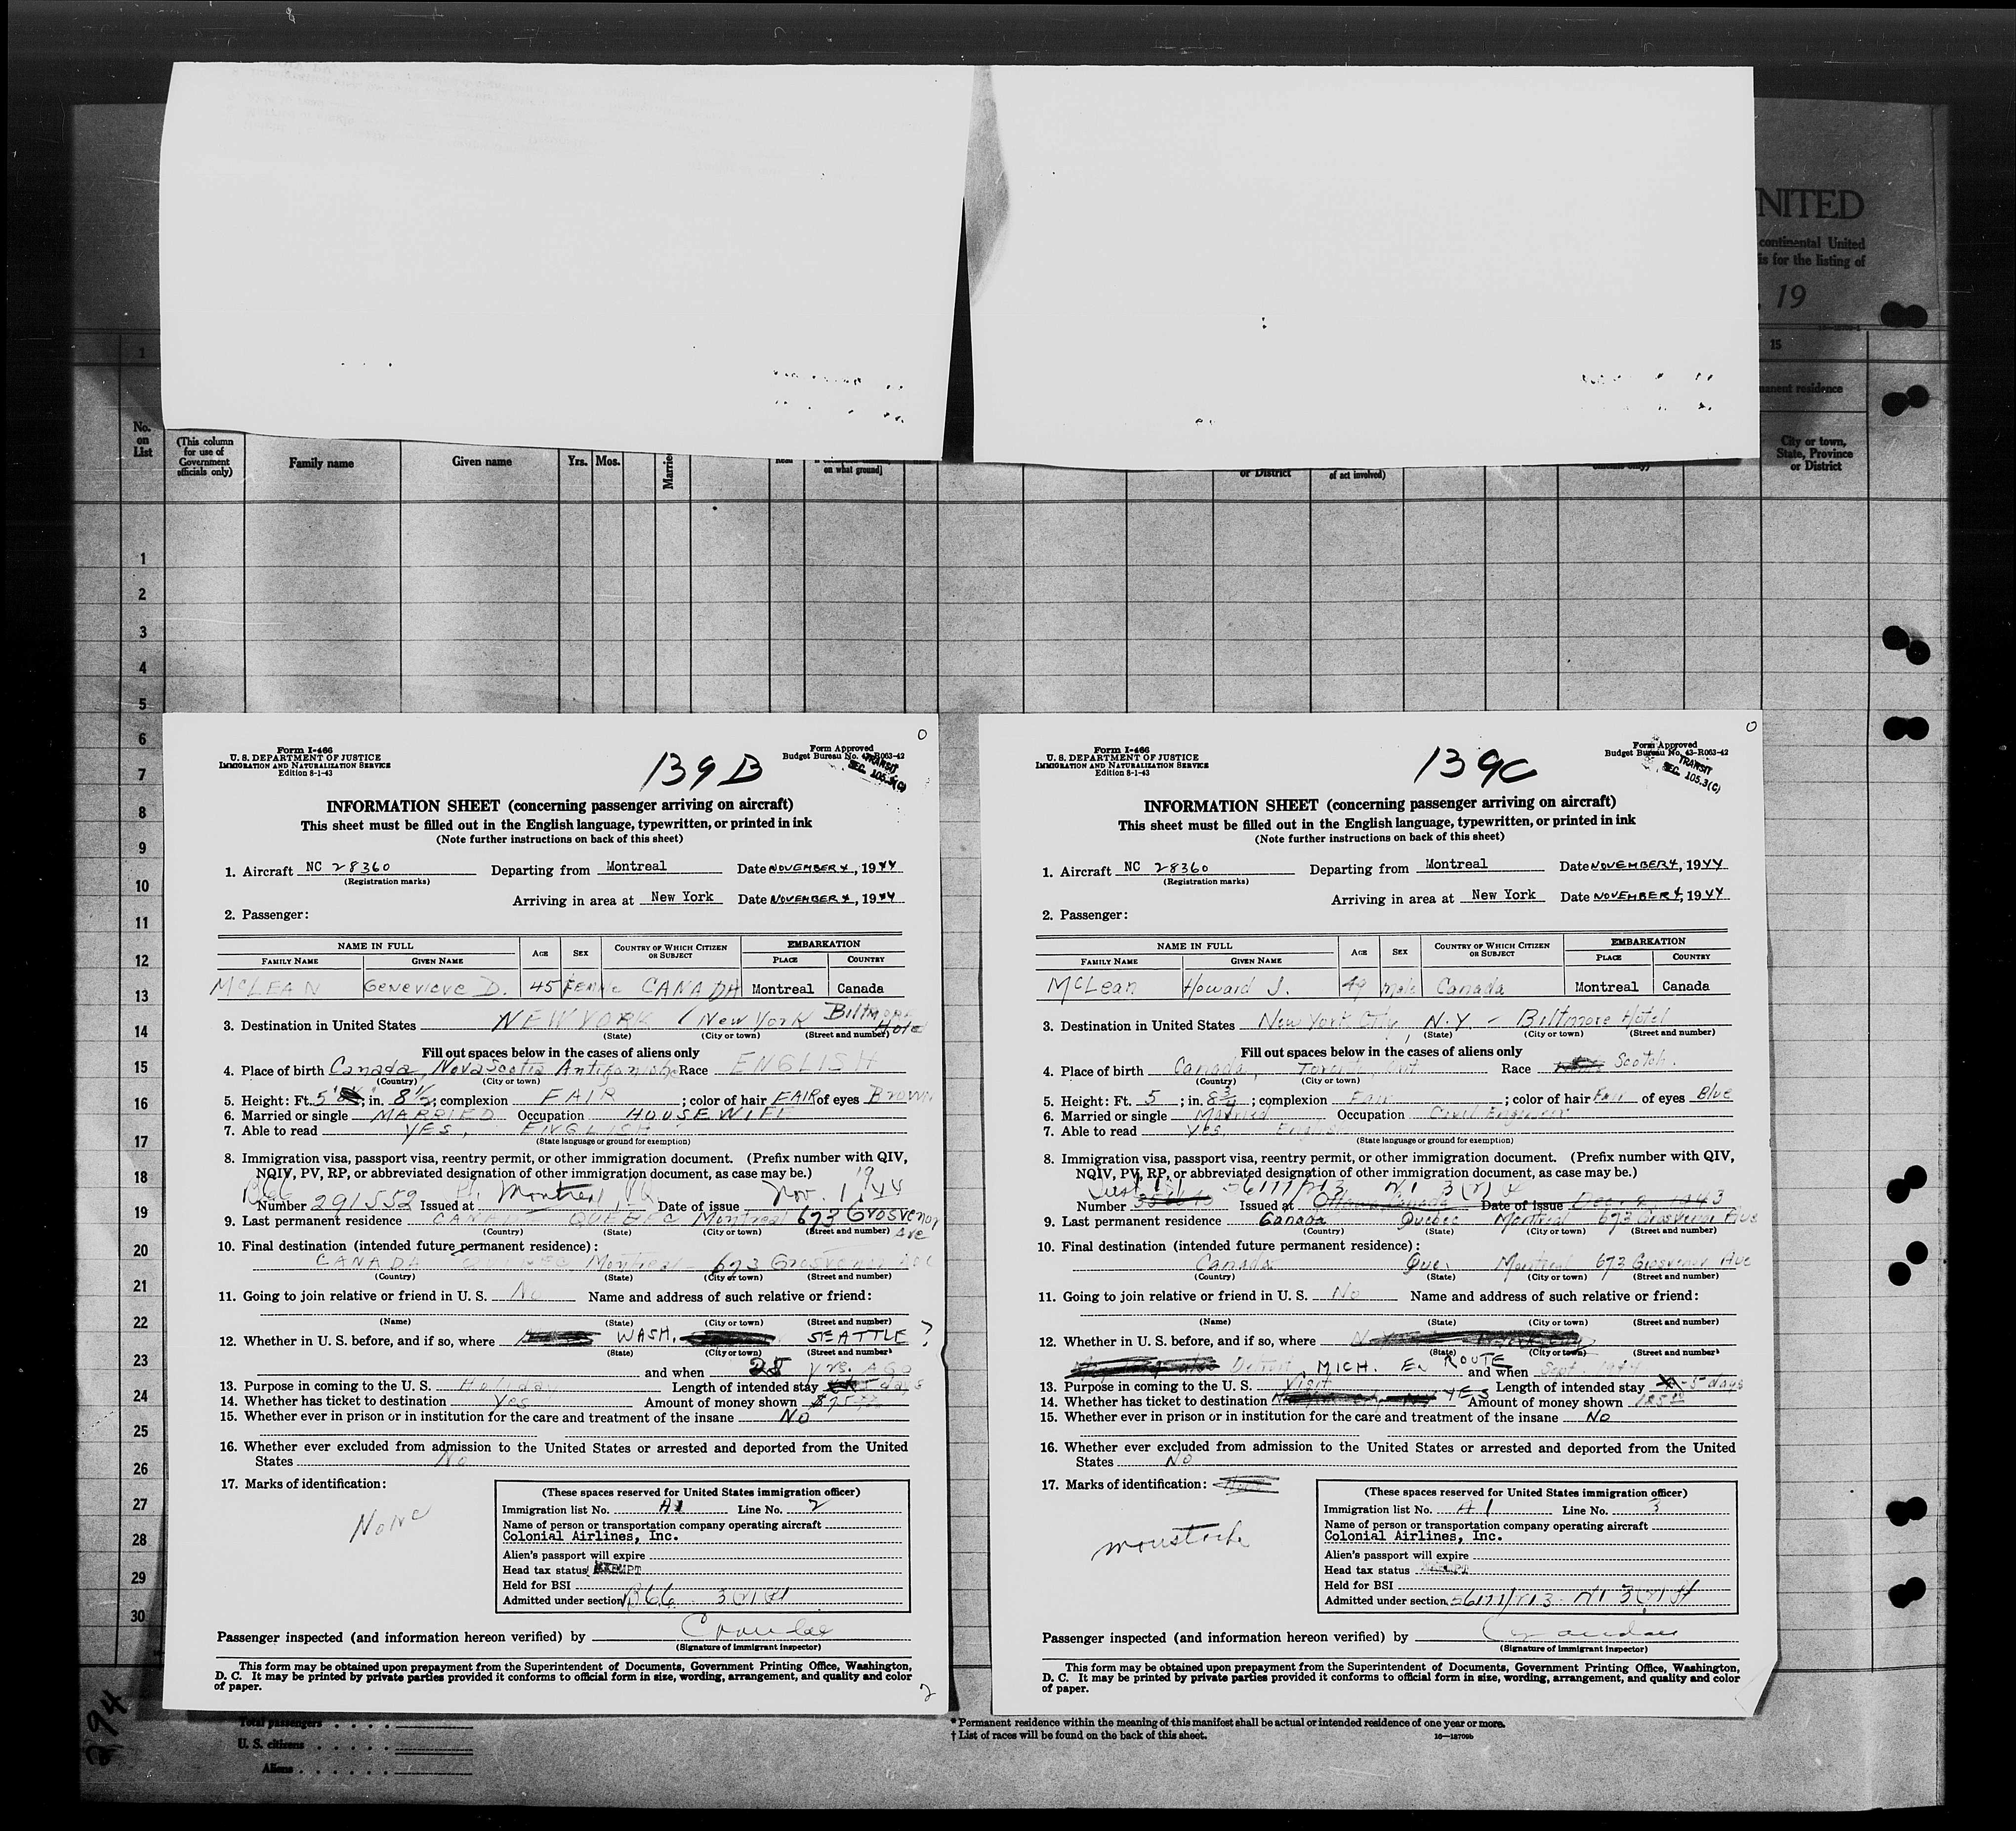 NITED
continental United
is for the listing of
, 19
1
15
manent residence
No. on List
(This column for use of Government officials only)
Family name
Given name
Yrs.
Mos.
Married
Read
on what ground]
or District
of act involved)
City or town, State, Province or District
1
2
3
4
5
6
7
8
9
10
11
12
13
14
15
16
17
18
19
20
21
22
23
24
25
26
27
28
29
30
Form I-466
U. S. DEPARTMENT OF JUSTICE
IMMIGRATION AND NATURALIZATION SERVICE
Edition 8-1-43
139B
Form Approved
Budget Bureau No. 43-R063-42
TRANSIT
SEC. 105.3(C)
0
INFORMATION SHEET (concerning passenger arriving on aircraft)
This sheet must be filled out in the English language, typewritten, or printed in ink
(Note further instructions on back of this sheet)
1. Aircraft NC 28360 Departing from Montreal Date NOVEMBER 4, 1944
(Registration marks)
Arriving in area at New York Date NOVEMBER 4, 1944
2. Passenger:
NAME IN FULL AGE SEX COUNTRY OF WHICH CITIZEN OR SUBJECT EMBARKATION
FAMILY NAME GIVEN NAME PLACE COUNTRY
McLEAN Genevieve D. 45 FEMALE CANADA Montreal Canada
3. Destination in United States NEW YORK / New York Biltmore Hotel
(State) (City or town) (Street and number)
Fill out spaces below in the cases of aliens only
4. Place of birth Canada, Nova Scotia Antigonish Race ENGLISH
(Country) (City or town)
5. Height: Ft. 5'; in. 8 1/2; complexion FAIR; color of hair FAIR of eyes Brown
6. Married or single MARRIED Occupation HOUSEWIFE
7. Able to read YES, ENGLISH
(State language or ground for exemption)
8. Immigration visa, passport visa, reentry permit, or other immigration document. (Prefix number with QIV,
NQIV, PV, RP, or abbreviated designation of other immigration document, as case may be.)
Number 291552 Issued at Montreal Date of issue Nov. 1 1944
9. Last permanent residence CANADA QUEBEC Montreal 673 Grosvenor Ave
(Country) (State) (City or town) (Street and number)
10. Final destination (intended future permanent residence):
CANADA QUEBEC Montreal - 673 Grosvenor Ave
(Country) (State) (City or town) (Street and number)
11. Going to join relative or friend in U. S. No Name and address of such relative or friend:
(Name) (State) (City or town) (Street and number)
12. Whether in U. S. before, and if so, where WASH. SEATTLE ?
(State) (City or town) (Street and number)
and when 25 yrs. AGO
13. Purpose in coming to the U. S. Holiday Length of intended stay days
14. Whether has ticket to destination Yes Amount of money shown
15. Whether ever in prison or in institution for the care and treatment of the insane No
16. Whether ever excluded from admission to the United States or arrested and deported from the United
States No
17. Marks of identification:
None
(These spaces reserved for United States immigration officer)
Immigration list No. A1 Line No. 2
Name of person or transportation company operating aircraft
Colonial Airlines, Inc.
Alien's passport will expire
Head tax status EXEMPT
Held for BSI
Admitted under section
Passenger inspected (and information hereon verified) by
(Signature of immigrant inspector)
This form may be obtained upon prepayment from the Superintendent of Documents, Government Printing Office, Washington,
D. C. It may be printed by private parties provided it conforms to official form in size, wording, arrangement, and quality and color
of paper.
2
Form I-466
U. S. DEPARTMENT OF JUSTICE
IMMIGRATION AND NATURALIZATION SERVICE
Edition 8-1-43
139C
Form Approved
Budget Bureau No. 43-R063-42
TRANSIT
SEC. 105.3(C)
0
INFORMATION SHEET (concerning passenger arriving on aircraft)
This sheet must be filled out in the English language, typewritten, or printed in ink
(Note further instructions on back of this sheet)
1. Aircraft NC 28360 Departing from Montreal Date NOVEMBER 4, 1944
(Registration marks)
Arriving in area at New York Date NOVEMBER 4, 1944
2. Passenger:
NAME IN FULL AGE SEX COUNTRY OF WHICH CITIZEN OR SUBJECT EMBARKATION
FAMILY NAME GIVEN NAME PLACE COUNTRY
McLean Howard J. 49 Male Canada Montreal Canada
3. Destination in United States New York City, N.Y. - Biltmore Hotel
(State) (City or town) (Street and number)
Fill out spaces below in the cases of aliens only
4. Place of birth Canada, Toronto, Ont Race Scotch.
(Country) (City or town)
5. Height: Ft. 5; in. 8 3/4; complexion Fair; color of hair Fair of eyes Blue
6. Married or single Married Occupation Civil Engineer
7. Able to read yes, English
(State language or ground for exemption)
8. Immigration visa, passport visa, reentry permit, or other immigration document. (Prefix number with QIV,
NQIV, PV, RP, or abbreviated designation of other immigration document, as case may be.)
Number Issued at Ottawa Canada Date of issue Dec. 9, 1943
9. Last permanent residence Canada Quebec Montreal 673 Grosvenor Ave
(Country) (State) (City or town) (Street and number)
10. Final destination (intended future permanent residence):
Canada Que. Montreal 673 Grosvenor Ave
(Country) (State) (City or town) (Street and number)
11. Going to join relative or friend in U. S. No Name and address of such relative or friend:
(Name) (State) (City or town) (Street and number)
12. Whether in U. S. before, and if so, where
(State) (City or town) (Street and number)
Detroit MICH. EN ROUTE and when Sept.
13. Purpose in coming to the U. S. Visit Length of intended stay 5 days
14. Whether has ticket to destination YES Amount of money shown
15. Whether ever in prison or in institution for the care and treatment of the insane No
16. Whether ever excluded from admission to the United States or arrested and deported from the United
States No
17. Marks of identification:
moustache
(These spaces reserved for United States immigration officer)
Immigration list No. A1 Line No. 3
Name of person or transportation company operating aircraft
Colonial Airlines, Inc.
Alien's passport will expire
Head tax status
Held for BSI
Admitted under section
Passenger inspected (and information hereon verified) by
(Signature of immigrant inspector)
This form may be obtained upon prepayment from the Superintendent of Documents, Government Printing Office, Washington,
D. C. It may be printed by private parties provided it conforms to official form in size, wording, arrangement, and quality and color
of paper.
294
Total passengers
U. S. citizens
Aliens
* Permanent residence within the meaning of this manifest shall be actual or intended residence of one year or more.
† List of races will be found on the back of this sheet.
16—18709b